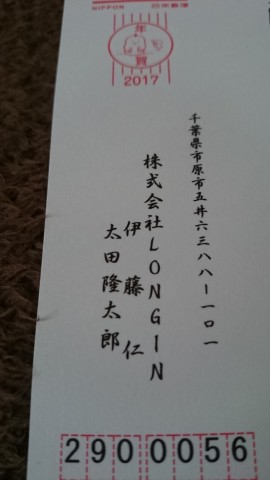 NIPPON 日本郵便
年賀
2017
千葉県市原市五井六三八八ー一〇一
株式会社LONGIN
伊藤仁
太田隆太郎
2900056